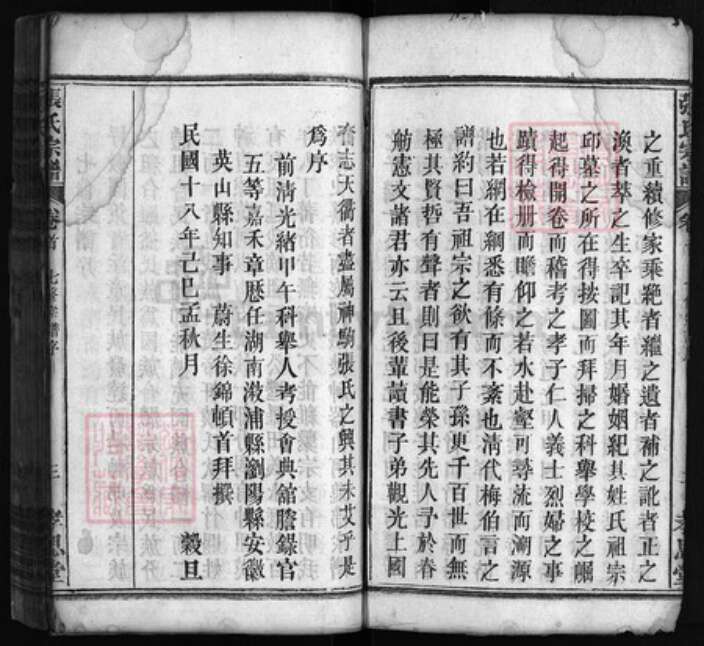 張氏宗譜
卷首
孝思堂
之重續修家乘絶者繼之遺者補之訛者正之
渙者萃之生卒記其年月婚姻紀其姓氏祖宗
邱墓之所在得按圖而拜掃之科舉學校之崛
起得開卷而稽考之孝子仁人義士烈婦之事
蹟得檢册而瞻仰之若水赴壑可尋流而溯源
也若網在綱悉有條而不紊也清代梅伯言之
譜約曰吾祖宗之欲有其子孫更千百世而無
極其賢哲有聲者則曰是能榮其先人予於春
舫憲文諸君亦云且後輩讀書子弟觀光上國
奮志天衢者盡屬神駒張氏之興其未艾乎是
爲序
前清光緒甲午科舉人考授會典館謄錄官
五等嘉禾章歷任湖南漵浦縣瀏陽縣安徽
英山縣知事 蔚生徐錦頓首拜撰
民國十八年己巳孟秋月 穀旦
張氏宗譜
卷首
七修宗譜序
三
孝思堂